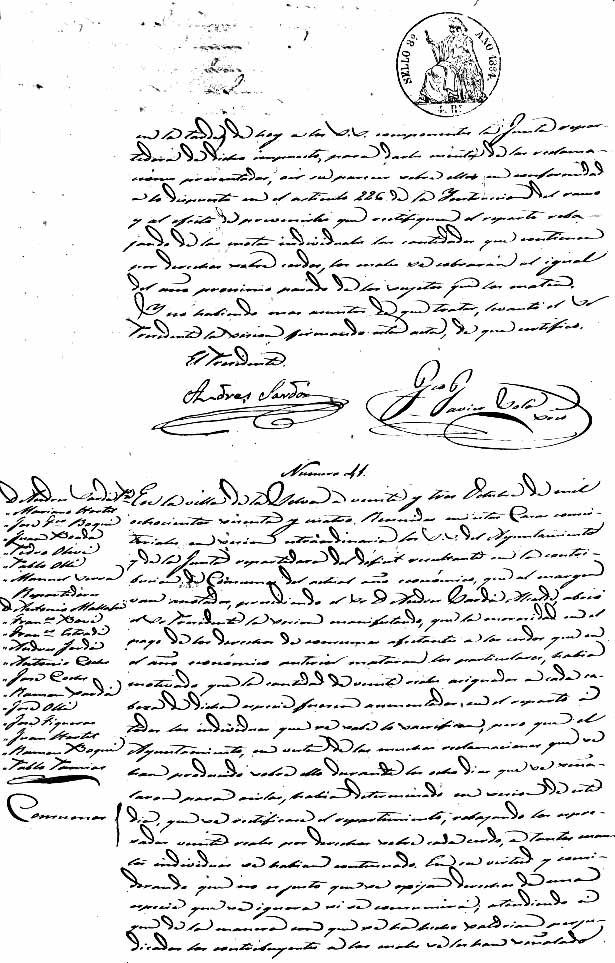 SELLO 8º AÑO 1864
4 Rs
en la tarde de hoy a los S.S. componentes la Junta repar
tidora de dicho impuesto, para darles cuenta de las reclama
ciones presentadas, oir su parecer sobre ellas en conformidad
a lo dispuesto en el articulo 226 de la Instruccion del ramo
y al efecto de prevenirles que rectifiquen el reparto reba
jando de las cuotas individuales las cantidades que contienen
por derechos sobre cerdos, los cuales se cobrarán al igual
del año proximo pasado de los sujetos que los maten.
Y no habiendo mas asuntos de que tratar, levantó el Sr
Presidente la sesion firmando esta acta, de que certifico.
El Presidente
Andres Sardá
Javier
Srio
Numero 41.
En la villa de la Selva a veinte y tres Octubre de mil
ochocientos sesenta y cuatro. Reunidos en estas Casas consis
toriales, en sesion estraordinaria los S.S. del Ayuntamiento
y de la Junta repartidora del deficit resultante en la contri
bucion de Consumos del actual año económico, que al margen
van anotados, presidiendo el Sr D. Andres Sardá Alcalde, abrió
el Sr Presidente la sesion manifestando, que la morosidad en el
pago de los derechos de consumos afectantes a los cerdos que en
el año económico anterior mataron los particulares, habia
motivado que la cantidad de veinte reales asignados a cada ca
beza de dicha especie fuesen aumentados en el reparto a
todos los individuos que se sabe lo sacrifican, pero que el
Ayuntamiento, en vista de las muchas reclamaciones que se
han producido sobre ello durante los ocho dias que se seña
laron para oirlas, habia determinado en sesion de este
dia, que se rectificase el repartimiento, rebajando los espre
sados veinte reales por derechos sobre cada cerdo, a tantos cuan
los individuos se habian continuado. En su virtud y consi
derando que no es justo que se exijan derechos de una
especie que se ignora si se consumirá, atendiendo a
que de la manera con que se ha hecho saldrian perju
dicados los contribuyentes a los cuales se les han señalado
D. Andres Sardá Pte
Mariano Hortet
José Boqué
Juan Sardá
Pedro Olivé
Pablo Ollé
Manuel
Repartidores
D. Antonio Mallafré
Franco
Franco
Andres Jordi
Antonio
José
Ramon Sardá
José Ollé
José Figueras
Juan Hortet
Ramon Boqué
Pablo
Consumos